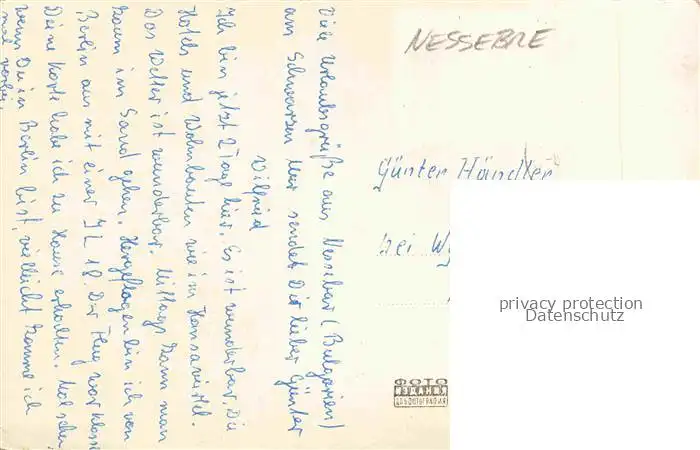 Viele Urlaubsgrüße aus Nessebar (Bulgarien)
am Schwarzen Meer sendet Dir lieber Günter
Wilfried
Ich bin jetzt 2 Tage hier. Es ist wunderbar. Die
Hotels und Wohnbauten wie im Hansaviertel.
Das Wetter ist wunderbar. Mittags kann man
kaum im Sand gehen. Hergeflogen bin ich von
Berlin aus mit einer IL 18. Der Flug war klasse
Deine Karte habe ich zu Hause erhalten. Mal sehen
wenn Du in Berlin bist, vielleicht komme ich
mal vorbei.
NESSEBRE
Günter Händler
bei
privacy protection
Datenschutz
ФОТО
ИЗДАНИЕ